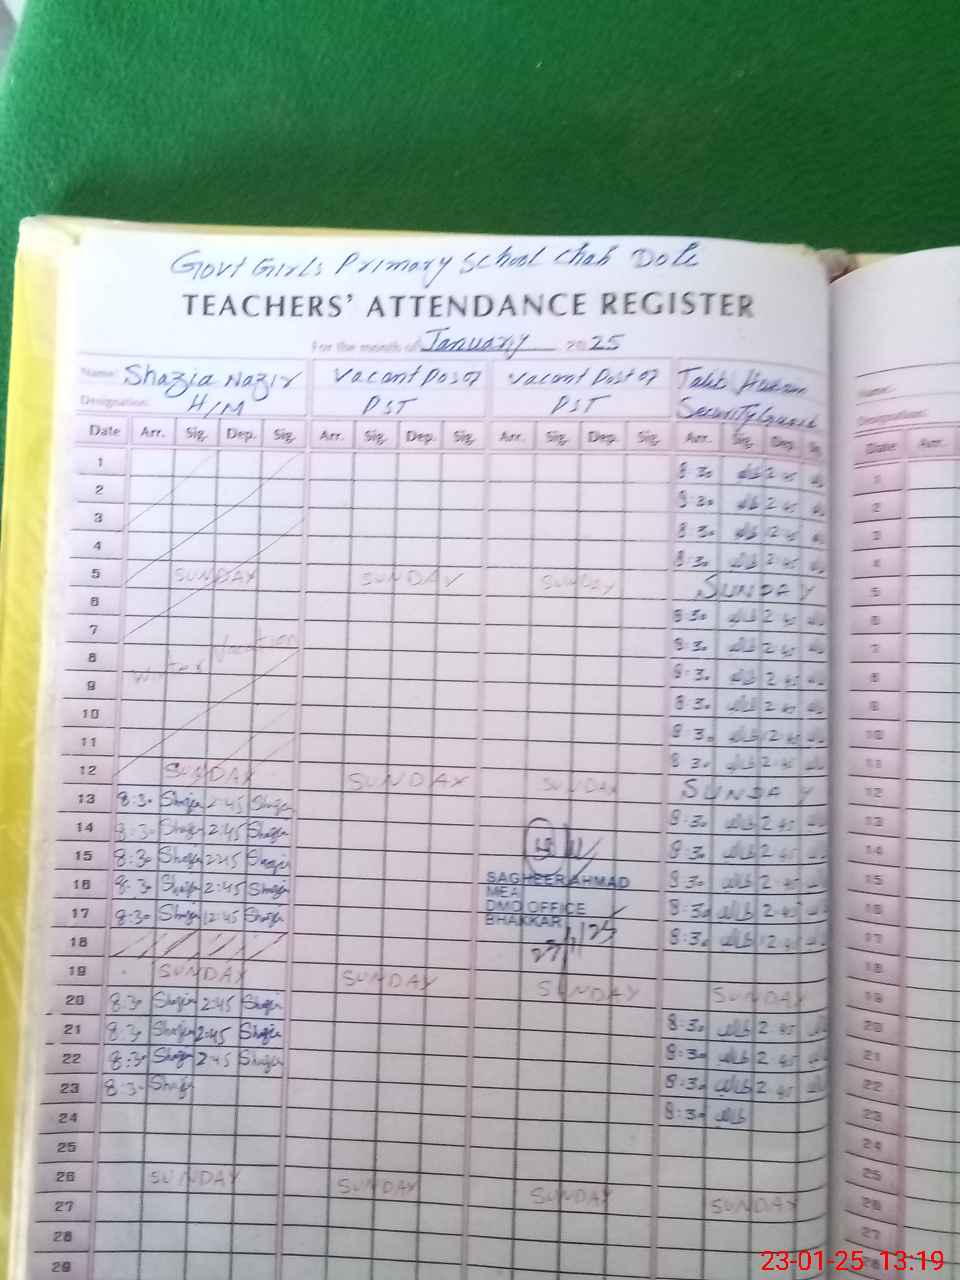 Govt Girls Primary School Chah Dole
TEACHERS' ATTENDANCE REGISTER
For the month of January 2025
Name: Shazia Nazir Vacant Post of Vacant Post of Talib Hussain
Designation: H/M PST PST Security Guard
Date Arr. Sig. Dep. Sig. Arr. Sig. Dep. Sig. Arr. Sig. Dep. Sig. Arr. Sig. Dep. Sig.
1 8:30 طالب 2:45 طالب
2 8:30 طالب 2:45 طالب
3 8:30 طالب 2:45 طالب
4 8:30 طالب 2:45 طالب
5 SUNDAY SUNDAY SUNDAY SUNDAY
6 8:30 طالب 2:45 طالب
7 8:30 طالب 2:45 طالب
8 Winter Vacation 8:30 طالب 2:45 طالب
9 8:30 طالب 2:45 طالب
10 8:30 طالب 2:45 طالب
11 8:30 طالب 2:45 طالب
12 SUNDAY SUNDAY SUNDAY SUNDAY
13 8:30 Shazia 2:45 Shazia 8:30 طالب 2:45 طالب
14 8:30 Shazia 2:45 Shazia 8:30 طالب 2:45 طالب
15 8:30 Shazia 2:45 Shazia 8:30 طالب 2:45 طالب
16 8:30 Shazia 2:45 Shazia 8:30 طالب 2:45 طالب
17 8:30 Shazia 2:45 Shazia 8:30 طالب 2:45 طالب
SAGHEER AHMAD
MEA
DMO OFFICE
BHAKKAR
18
19 SUNDAY SUNDAY SUNDAY SUNDAY
20 8:30 Shazia 2:45 Shazia 8:30 طالب 2:45 طالب
21 8:30 Shazia 2:45 Shazia 8:30 طالب 2:45 طالب
22 8:30 Shazia 2:45 Shazia 8:30 طالب 2:45 طالب
23 8:30 Shazia 8:30 طالب
24
25
26 SUNDAY SUNDAY SUNDAY SUNDAY
27
28
29
Name:
Designation:
Date Arr.
1
2
3
4
5
6
7
8
9
10
11
12
13
14
15
16
17
18
19
20
21
22
23
24
25
26
27
23-01-25 13:19